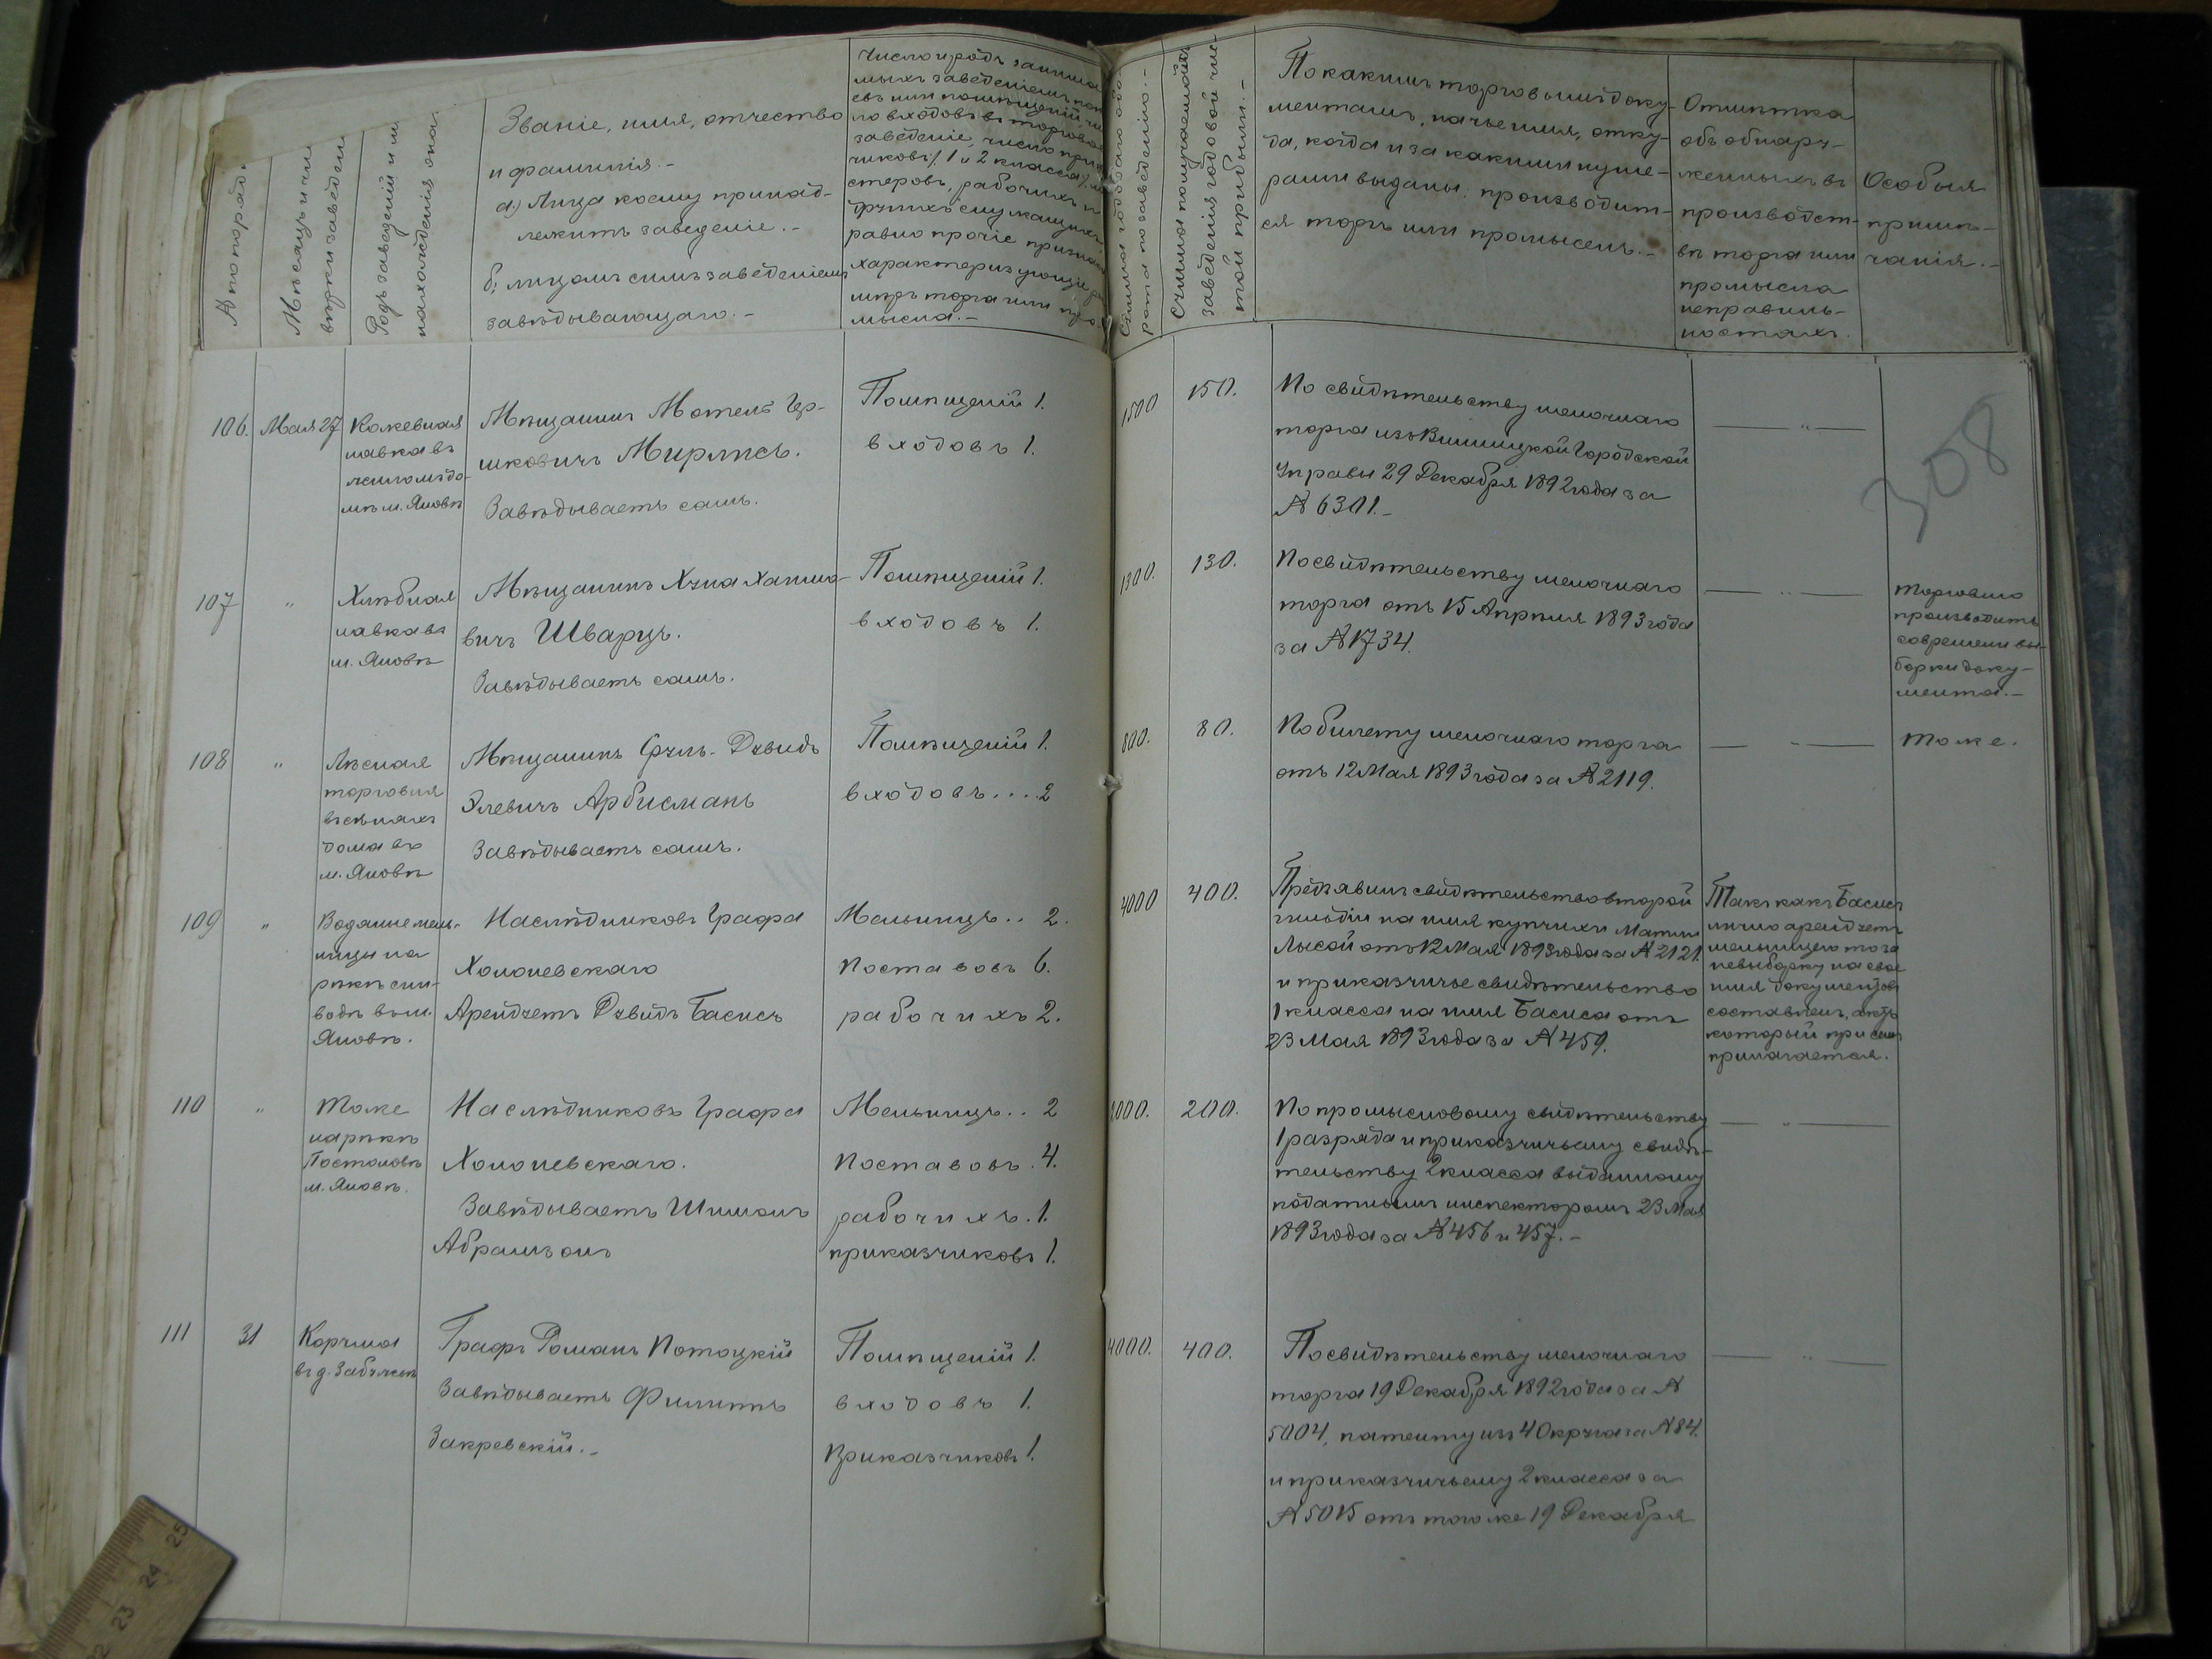 № по поряд
Мѣсяцъ и чи
вѣрки заведен
Родъ заведенія и м
нахожденія онаг
Званіе, имя, отчество
и фамилія.-
а) Лица коему принад-
лежитъ заведеніе.-
б) лицомъ симъ заведеніемъ
завѣдывающаго.-
Число и родъ занима
мыхъ заведеніемъ
евъ или помѣщеній чи
ло входовъ въ торговое
заведеніе, число при
чиковъ (1 и 2 класса), ма
стеровъ, рабочихъ и
другихъ служащихъ
равно прочіе признаки
характеризующіе раз
мѣръ торга или про
мысла.-
Сумма годоваго обо
рота по заведенію.-
Сумма получаемой
заведенія годовой чис
той прибыли.-
По какимъ торговымъ доку-
ментамъ, на чье имя, отку-
да, когда и за какими нуме-
рами выданы, производит-
ся торгъ или промыселъ.-
Отмѣтка
объ обнару-
женныхъ въ
производст-
вѣ торга или
промысла
неправиль-
ностяхъ.
Особыя
примѣ-
чанія.-
308
106.
Мая 27
Кожевная
лавка въ
жиломъ до-
мѣ м. Яновѣ
Мѣщанинъ Мотель Гер-
шковичъ Мирлисъ.
Завѣдываетъ самъ.
Помѣщеній 1.
входовъ 1.
1500
150.
По свидѣтельству мелочнаго
торга изъ Винницкой Городской
Управы 29 Декабря 1892 года за
№ 6301.-
— „ —
107
„
Хлѣбная
лавка въ
м. Яновѣ
Мѣщанинъ Хуна Хаимо-
вичъ Шварцъ.
Завѣдываетъ самъ.
Помѣщеній 1.
входовъ 1.
1300.
130.
По свидѣтельству мелочнаго
торга отъ 15 Апрѣля 1893 года
за № 1734.
— „ —
Торговлю
производитъ
со времени вы-
борки доку-
мента.-
108
„
Лѣсная
торговля
въ сѣняхъ
дома въ
м. Яновѣ
Мѣщанинъ Сруль-Дувидъ
Элевичъ Арбисманъ
Завѣдываетъ самъ.
Помѣщеній 1.
входовъ....2
800.
80.
По билету мелочнаго торга
отъ 12 Мая 1893 года за № 2119.
— „ —
Тоже.
109
„
Водяные мель-
ницы на
рѣкѣ сни-
водѣ въ м.
Яновѣ.
Наслѣдниковъ Графа
Холоневскаго
Арендуетъ Дувидъ Басисъ
Мельницъ.. 2.
поставовъ 6.
рабочихъ 2.
4000
400.
Предъявилъ свидѣтельство второй
гильдіи на имя купчихи Матли
Лысой отъ 12 Мая 1893 года за № 2121
и приказчичье свидѣтельство
1 класса на имя Басиса отъ
23 Мая 1893 года за № 459.
Такъ какъ Басисъ
лично арендуетъ
мельницею то за
невыборку на свое
имя документовъ
составленъ актъ
который при семъ
прилагается.
110
„
Тоже
на рѣкѣ
Постоловѣ
м. Яновѣ.
Наслѣдниковъ Графа
Холоневскаго.
Завѣдываетъ Шимонъ
Абрамзонъ
Мельницъ.. 2
поставовъ. 4.
рабочихъ. 1.
приказчиковъ 1.
2000.
200.
По промысловому свидѣтельству
1 разряда и приказчичьему свидѣ-
тельству 2 класса выданному
податнымъ инспекторомъ 23 Мая
1893 года за № 456 и 457.-
— „ —
111
31
Корчма
въ д.
Графъ Романъ Потоцкій
Завѣдываетъ Филиппъ
Закревскій.-
Помѣщеній 1.
входовъ 1.
Приказчиковъ 1.
4000.
400.
По свидѣтельству мелочнаго
торга 19 Декабря 1892 года за №
5004, патенту изъ 4 Округа за № 84.
и приказчичьему 2 класса за
№ 5015 отъ того же 19 Декабря
— „ —
25
24
23
22